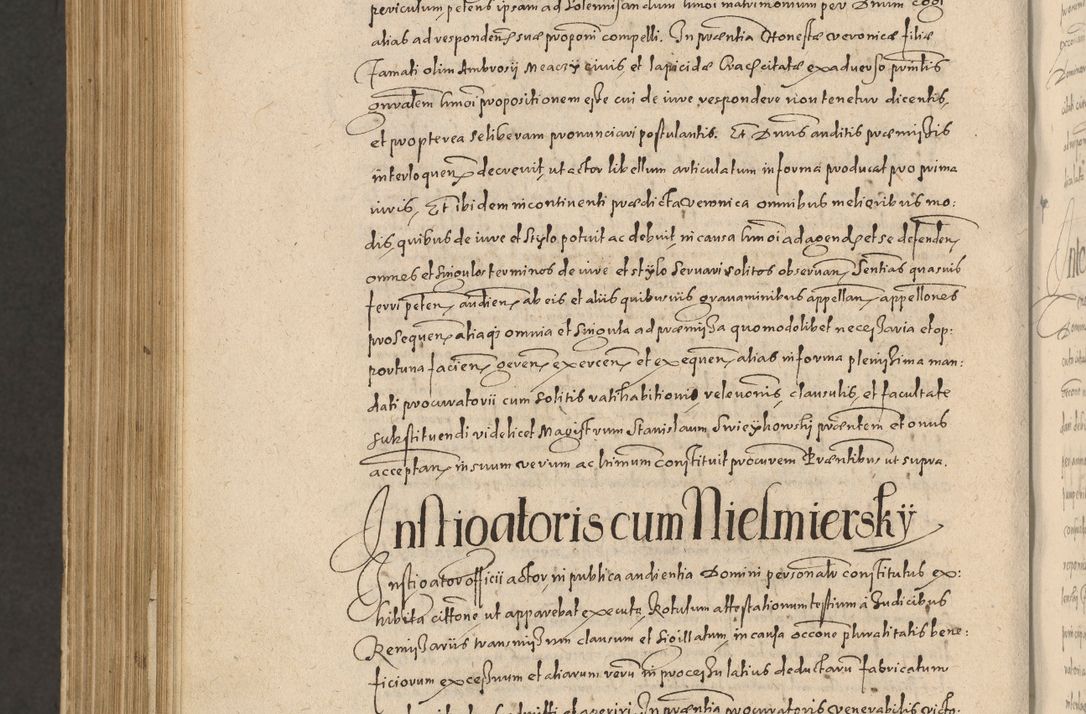 periculum petens ipsam ad solemnisandum hmoi matrimonium per Dnum cogi
alias ad responden suæ proponi compelli. In præntia Honestæ Veronicæ filiæ
Famati olim Ambrosij Meaczÿ civis et lapicidæ Crac. citatæ ex adverso prmlis
gnralem hmoi propositionem esse cui de iure respondere non tenetur dicentis,
et propterea se liberam pronunciari postulantis. Et Dnus auditis præmissis
interloquen decrevit, ut actor libellum articulatum in forma producat pro prima
iuris, Et ibidem incontinenti prædicta Veronica omnibus melioribus mo:
dis, quibus de iure et stylo potuit ac debuit, in causa hmoi ad agend et se defenden,
omnes et singulos terminos de iure et stÿlo servari solitos observan, Sentias quasvis
ferri peten, audien, ab eis et aliis quibusvis gravaminibus appellan, appellones
prosequen, aliaq omnia et singula ad præmissa quomodolibet necessaria et op:
portuna facien, geren, exercen, et exequen, alias in forma plenissima man:
dati procuratorii cum solitis ratihabitionis, relevonis, clausulis, et facultate
substituendi videlicet Magistrum Stanislaum Swieÿkowski præntem et onus
acceptan, in suum verum ac ltimum constituit procurem Præntibus ut supra.
Instigatoris cum Nielmierskÿ
Instigator officii actor, in publica audientia Domini personalr constitutus ex:
hibita cittone ut apparebat executa, Rotulum attestationum testium à Judicibus
Remissariis transmissum clausum et sigillatum, in causa occone pluralitatis bene:
ficiorum excessuum et aliarum reru in processu latius deductaru fabricatum
In præntia procuratoris venerabilis